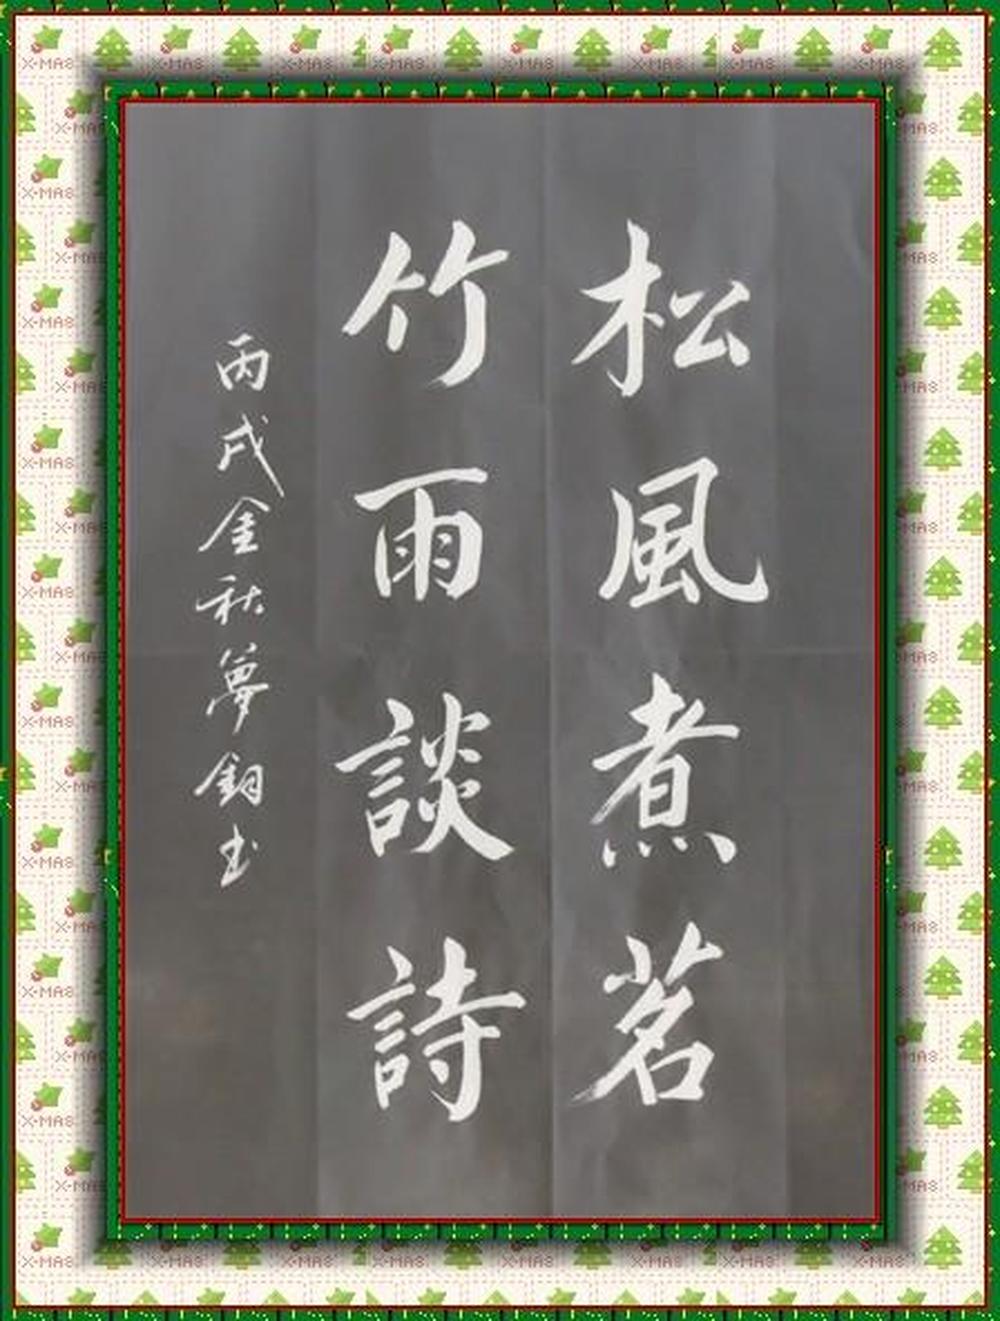 松風煮茗
竹雨談詩
丙戌金秋夢銅书